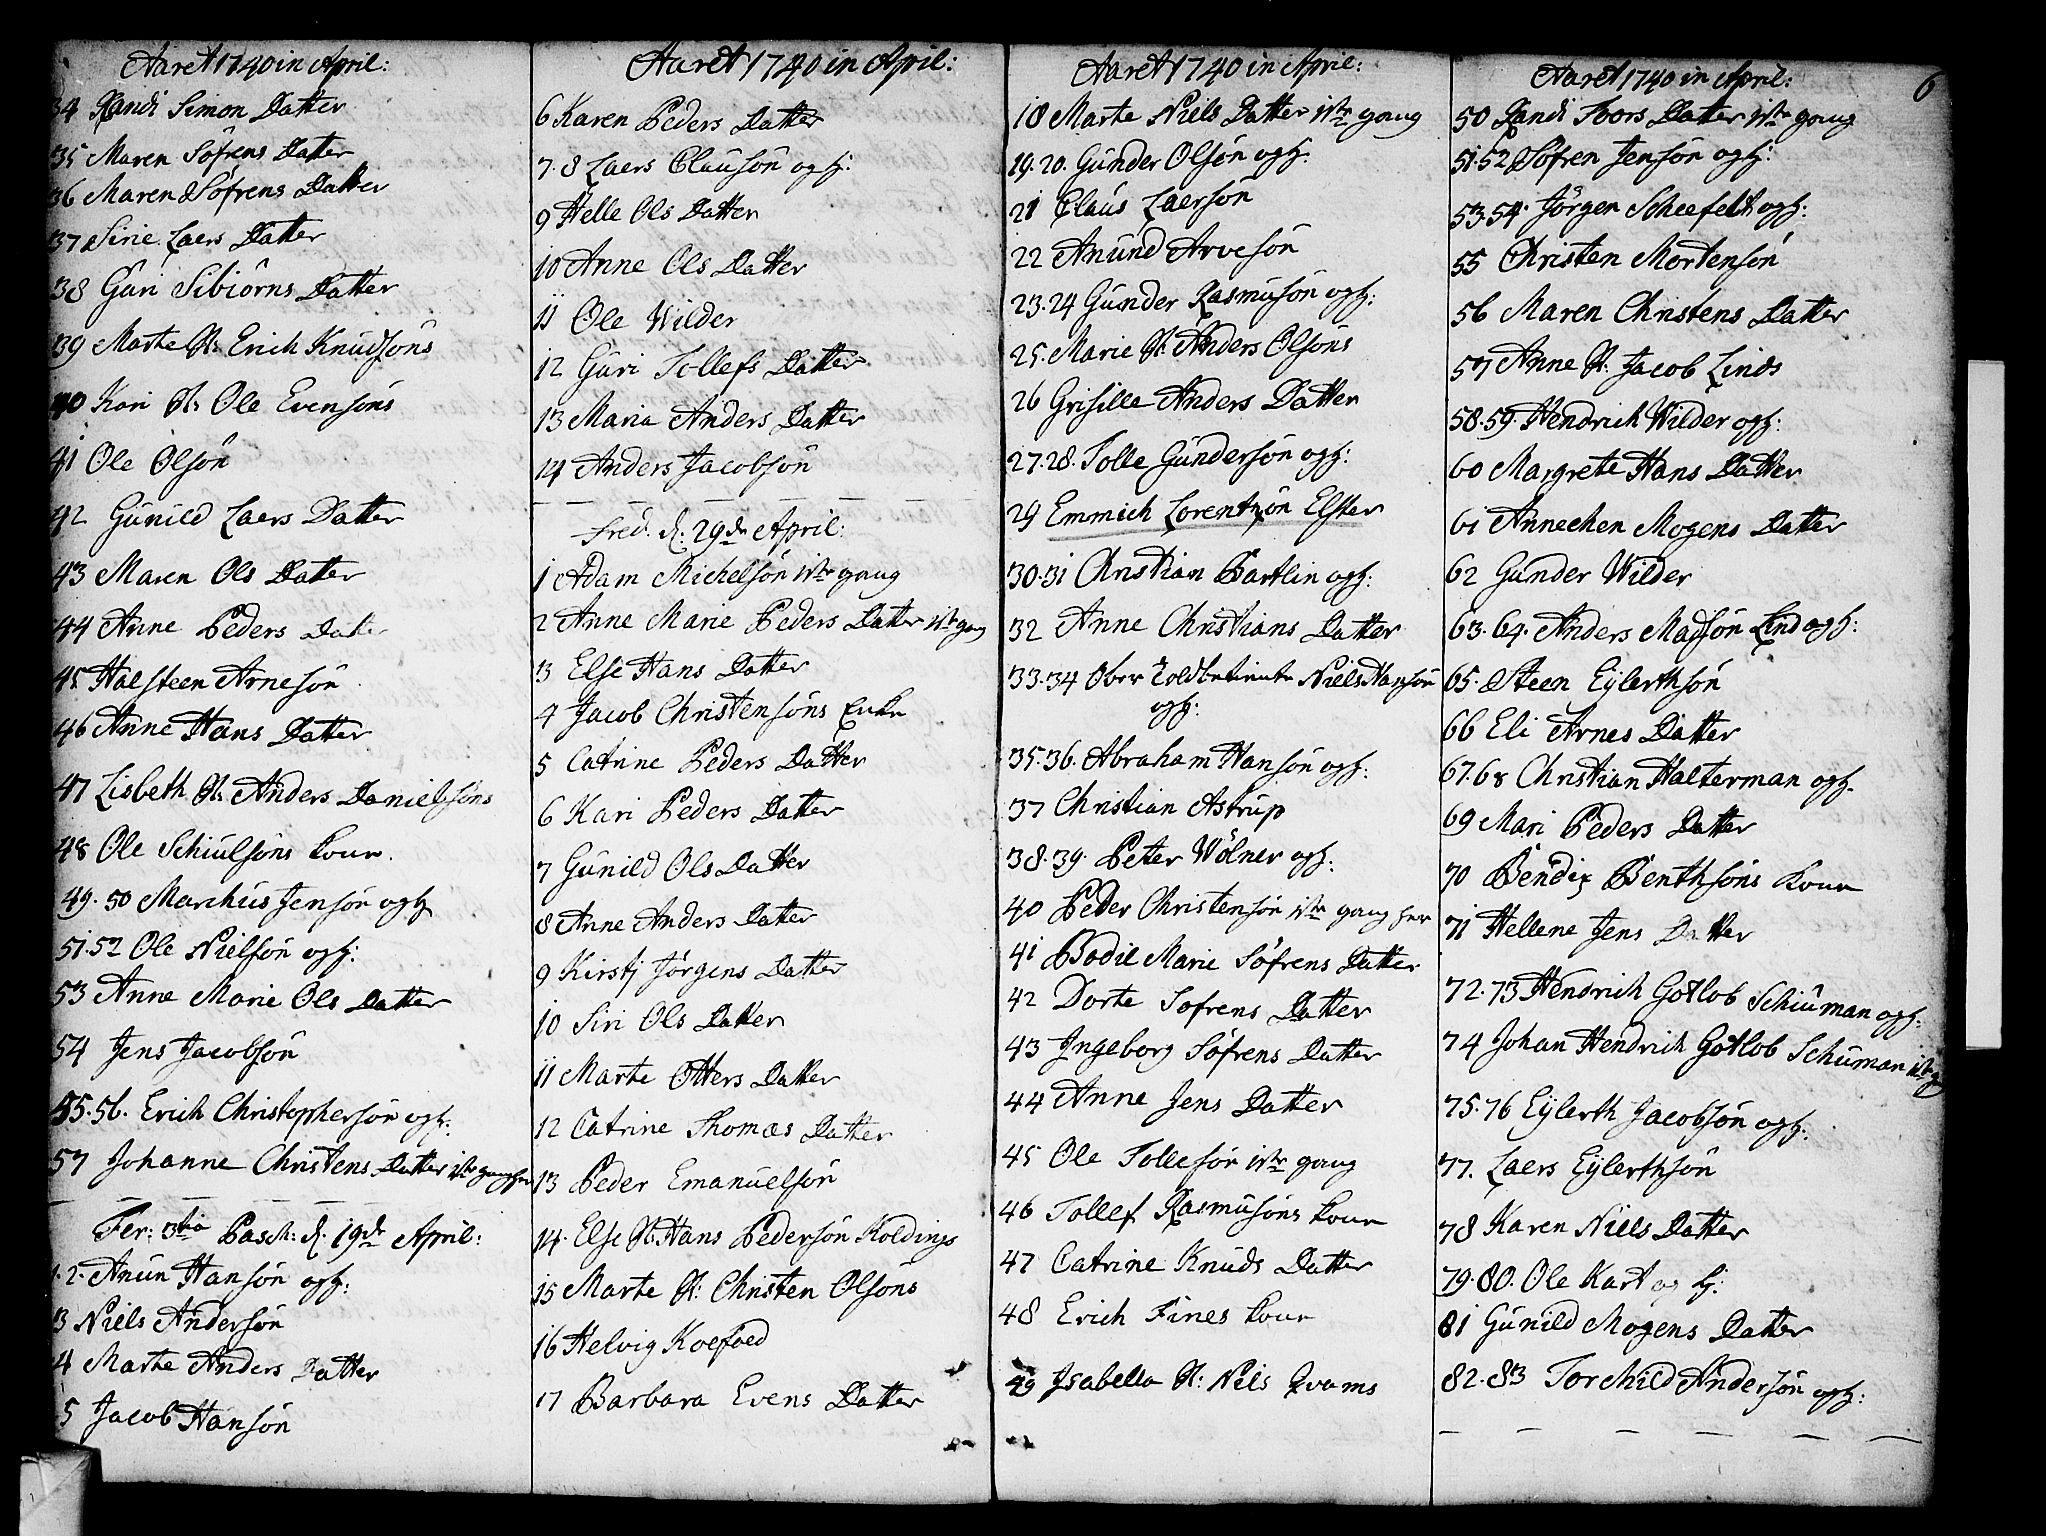 Aaret 1740 in April:
34 Randi Simon Datter
35 Maren Söfrens Datter
36 Maren Söfrens Datter
37 Sirie Laers Datter
38 Guri Sibiörns Datter
39 Marte H: Erich Knudsöns
40 Kari H: Ole Evensöns
41 Ole Olsön
42 Gunild Laers Datter
43 Maren Ols Datter
44 Anne Peders Datter
45 Halsteen Arnesön
46 Anne Hans Datter
47 Lisbeth H: Anders Danielsöns
48 Ole Schiulsöns kone
49. 50 Marchus Jensön og h:
51. 52 Ole Nielsön og h:
53 Anne Marie Ols Datter
54 Jens Jacobsön
55. 56. Erich Christophersön og h:
57 Johanne Christens Datter 1ste gang her
Fer: 3tia Pasch: d. 19de April:
1. 2. Anun Hansön og h:
3 Niels Andersön
4 Marte Anders Datter
5 Jacob Hansön
Aaret 1740 in April:
6 Karen Peders Datter
7. 8 Laers Clausön og h:
9 Helle Ols Datter
10 Anne Ols Datter
11 Ole Wilder
12 Guri Tollefs Datter
13 Maria Anders Datter
14 Anders Jacobsön
Fred. d: 29de April:
1 Adam Michelsön 1ste gang
2 Anne Marie Peders Datter 1ste gang
3 Else Hans Datter
4 Jacob Christensöns Enke
5 Catrine Peders Datter
6 Kari Peders Datter
7 Gunild Ols Datter
8 Anne Anders Datter
9 Kirstj Jörgens Datter
10 Siri Ols Datter
11 Marte Otters Datter
12 Catrine Thomæs Datter
13 Peder Emanuelsön
14. Else H: Hans Pedersön Koldings
15 Marte H: Christen Olsöns
16 Helvig Koefoed
17 Barbara Evens Datter
Aaret 1740 in April:
18 Marte Niels Datter 1ste gang
19. 20. Gunder Olsön og h:
21 Claus Laersön
22 Anund Arvesön
23. 24 Gunder Rasmusön og h:
25. Marie H: Anders Olsöns
26 Grisille Anders Datter
27. 28. Tolle Gundersön og h:
29 Emmich Lorentzön Elster
30. 31 Christian Bartlin og h:
32 Anne Christians Datter
33. 34 Ober Toldbetiente Niels Hansön
og h:
35. 36. Abraham Hansön og h:
37 Christian Astrup
38. 39. Peter Wölner og h:
40 Peder Christensön 1ste gang her
41 Bodil Marie Söfrens Datter
42 Dorte Sofrens Datter
43 Ingeborg Söfrens Datter
44 Anne Jens Datter
45 Ole Tollesön 1ste gang
46 Tollef Rasmusöns kone
47 Catrine Knuds Datter
48 Erich Fines kone
49 Isabella H: Niels Qvams
6
Aaret 1740 in April:
50 Randi Toers Datter 1ste gang
51. 52 Söfren Jensön og h:
53 54. Jörgen Scheefelt og h:
55 Christen Mortensön
56 Maren Christens Datter
57 Anne H: Jacob Linds
58. 59. Hendrich Wilder og h:
60 Margrete Hans Datter
61 Annechen Mogens Datter
62 Gunder Wilder
63. 64. Anders Madsön Lind og h:
65. Steen Eylerthsön
66 Eli Arnes Datter
67. 68 Christian Halterman og h.
69 Mari Peders Datter
70 Bendix Benthsöns kone
71 Hellene Jens Datter
72. 73 Hendrich Gotlob Schiuman og h:
74 Johan Hendrich Gotlob Schuman 1ste g
75. 76 Eylerth Jacobsön og h:
77. Laers Eylerthsön
78 Karen Niels Datter
79. 80. Ole Kart og h:
81 Gunild Mogens Datter
82. 83 Torchild Andersön og h: